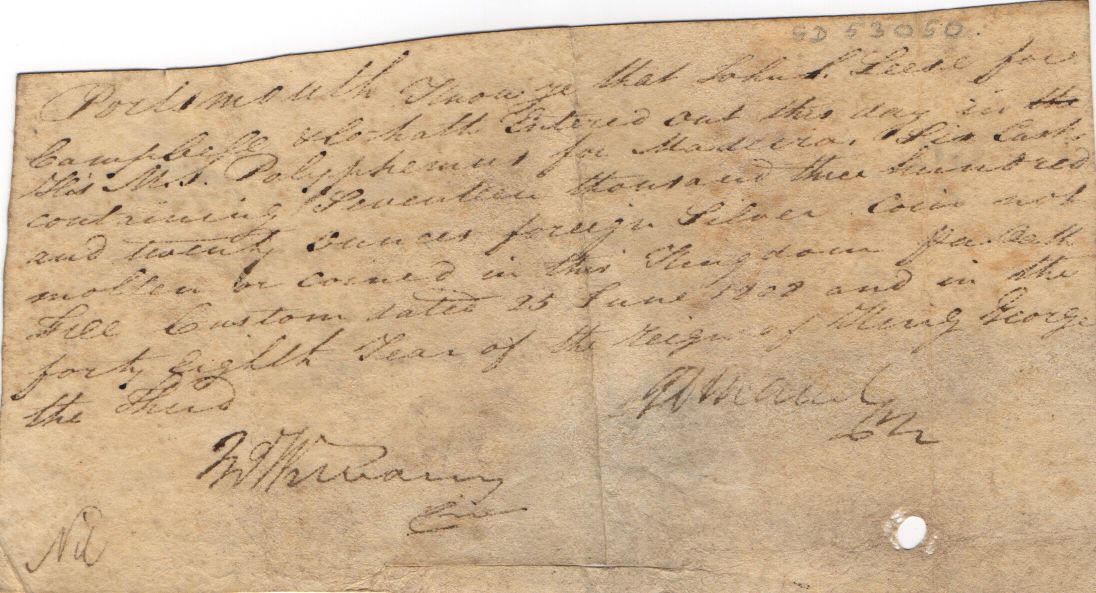 SD 53050
Portsmouth Know ye that John L. Leese for
Campbell & Co hath Entered out this day in the
His M.S. Polyphemus for Madeira, Six Casks
containing Seventeen thousand three hundred
and twenty ounces foreign Silver coin not
molten or coined in this Kingdom
Free Custom dated 25 June 1808 and in the
forty eighth Year of the reign of King George
the Third
Nil